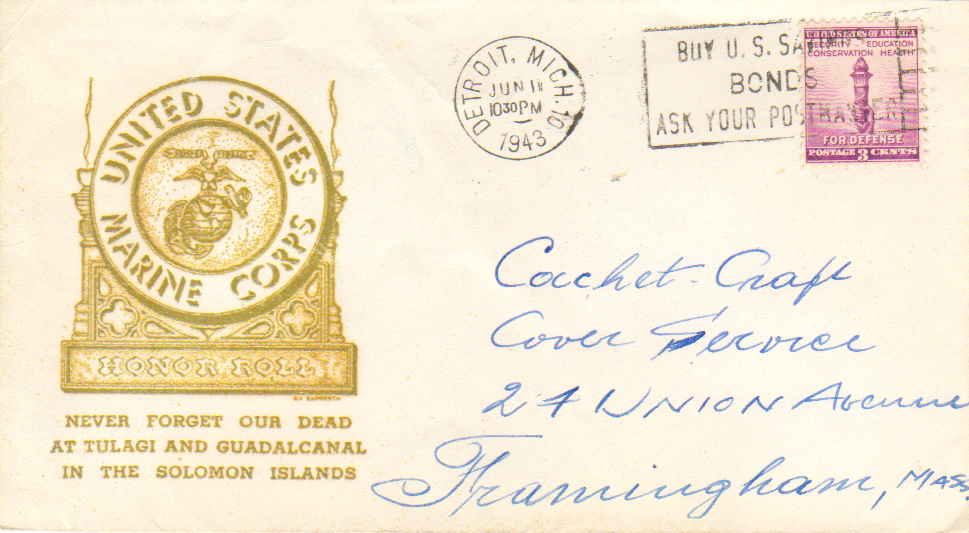 UNITED STATES
MARINE CORPS
HONOR ROLL
NEVER FORGET OUR DEAD
AT TULAGI AND GUADALCANAL
IN THE SOLOMON ISLANDS
DETROIT, MICH. 10
JUN 11
10 30 PM
1943
BUY U. S. SAVINGS
BONDS
ASK YOUR POSTMASTER
UNITED STATES OF AMERICA
SECURITY EDUCATION
CONSERVATION HEALTH
FOR DEFENSE
POSTAGE 3 CENTS
Cachet-Craft
Cover Service
24 UNION Avenue
Framingham, Mass